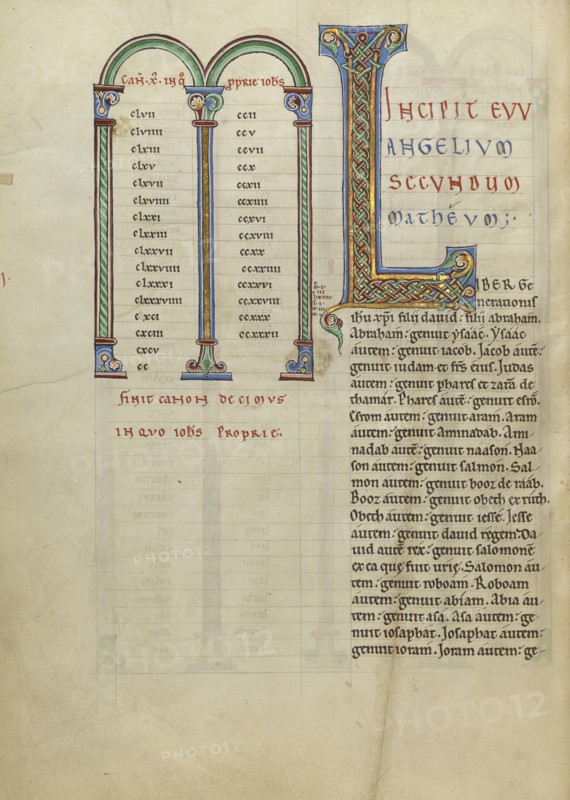 CAN. X. IN Q PPRIE IOHS
clvii
clviiii
clxiii
clxv
clxvii
clxviiii
clxxi
clxxiii
clxxvii
clxxviiii
clxxxi
clxxxviiii
cxci
cxciii
cxcv
cc
ccii
ccv
ccvii
ccx
ccxii
ccxiiii
ccxvi
ccxviii
ccxx
ccxxiiii
ccxxvii
ccxxviii
ccxxx
ccxxxii
FINIT CANON DECIMVS
IN QVO IOHS PROPRIE.
L
INCIPIT EVV
ANGELIVM
SECVNDUM
MATHEVM;.
IBER Ge
nerationis
ihu xpi filii david. filii abraham.
Abraham. genuit ysaac. Ysaac
autem. genuit iacob. Jacob aute.
genuit iudam et frs eius. Judas
autem. genuit phares et zara de
thamar. Phares aute. genuit esro.
Esrom autem. genuit aram. Aram
autem. genuit aminadab. Ami
nadab aute. genuit naason. Naa
son autem. genuit salmon. Sal
mon autem. genuit booz de raab.
Booz autem. genuit obeth ex ruth.
Obeth autem. genuit iesse. Jesse
autem. genuit david regem. Da
uid aute rex. genuit salomone
ex ea que fuit urie. Salomon au
tem. genuit roboam. Roboam
autem. genuit abiam. Abia au
tem. genuit asa. Asa autem. ge
nuit iosaphat. Josaphat autem.
genuit ioram. Joram autem. ge
PHOTO12
PHOTO12
PHOTO12
PHOTO12